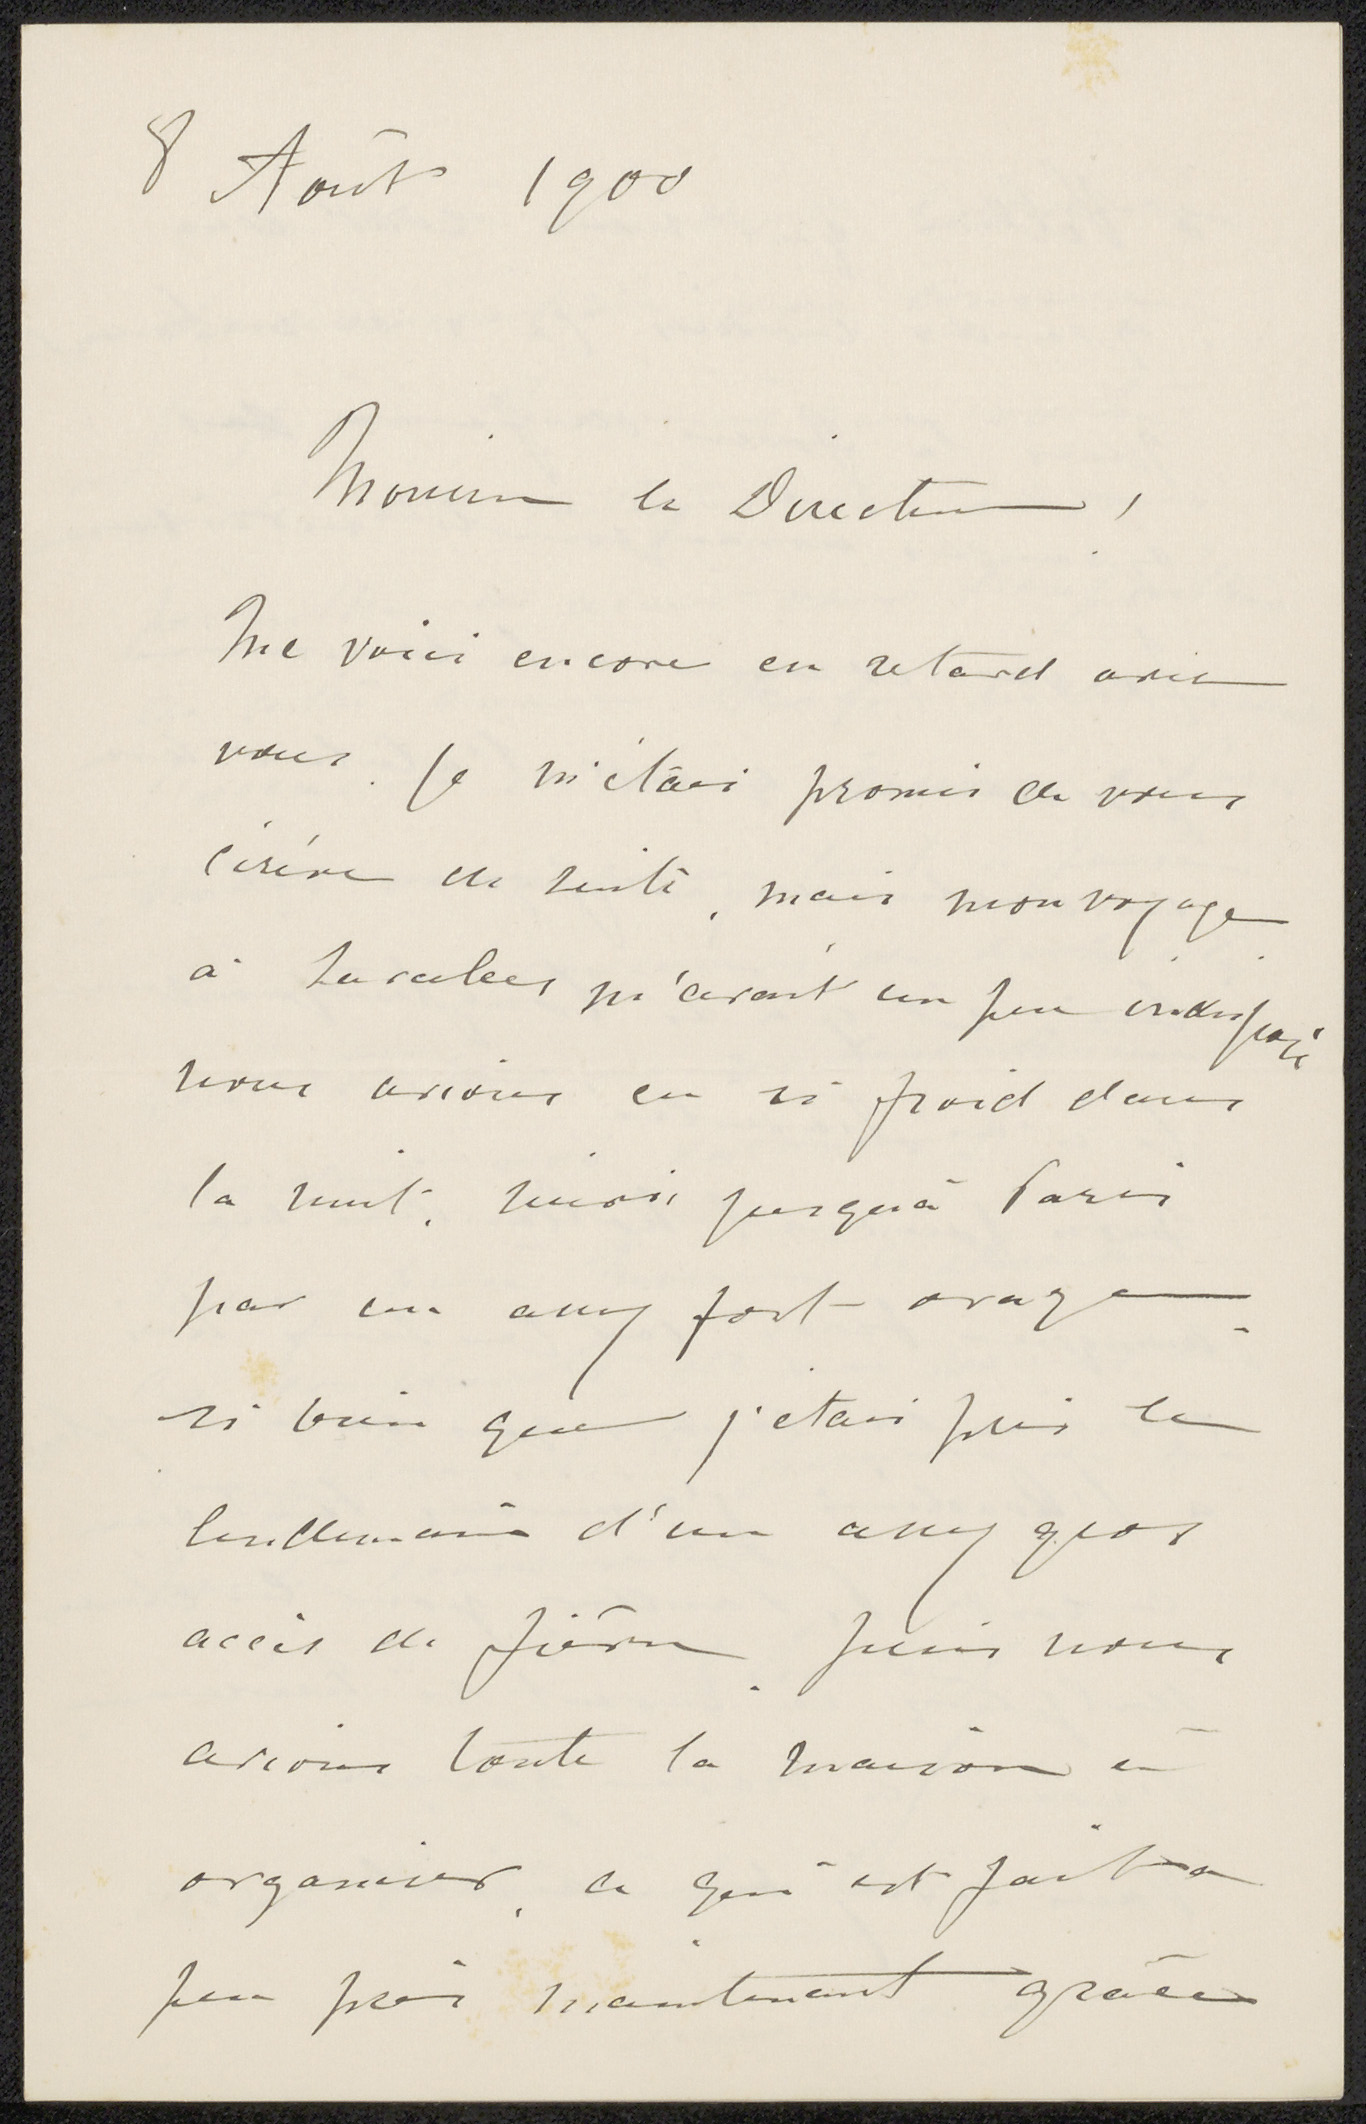 8 Août 1900
Monsieur le Directeur !
Me voici encore en retard avec
vous. Je m'étais promis de vous
écrire de suite, mais mon voyage
à m'avait un peu indisposé
nous avions eu si froid dans
la nuit, suivi jusqu'à Paris
par un assez fort orage.
si bien que j'étais pris le
lendemain d'un assez gros
accès de fièvre. puis nous
avions toute la maison à
organiser, ce qui est fait a
peu près maintenant grâce